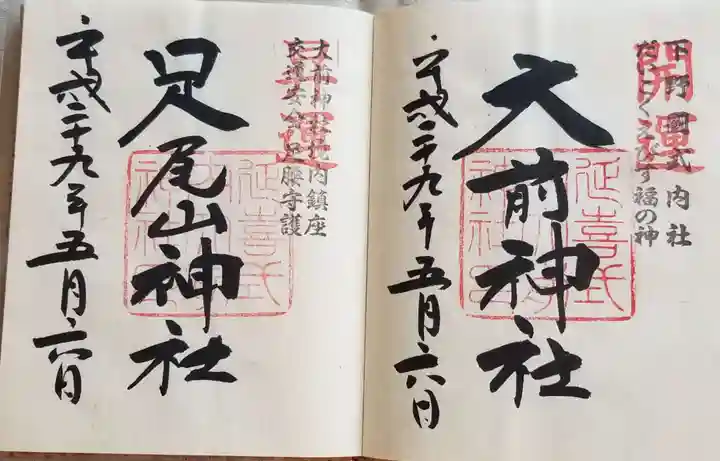 開運
下野國式内社
だいこくえびす福の神
大前神社
平成二十九年五月六日
昇運
大前神社境内鎮座
交通安全足腰守護
足尾山神社
平成二十九年五月六日